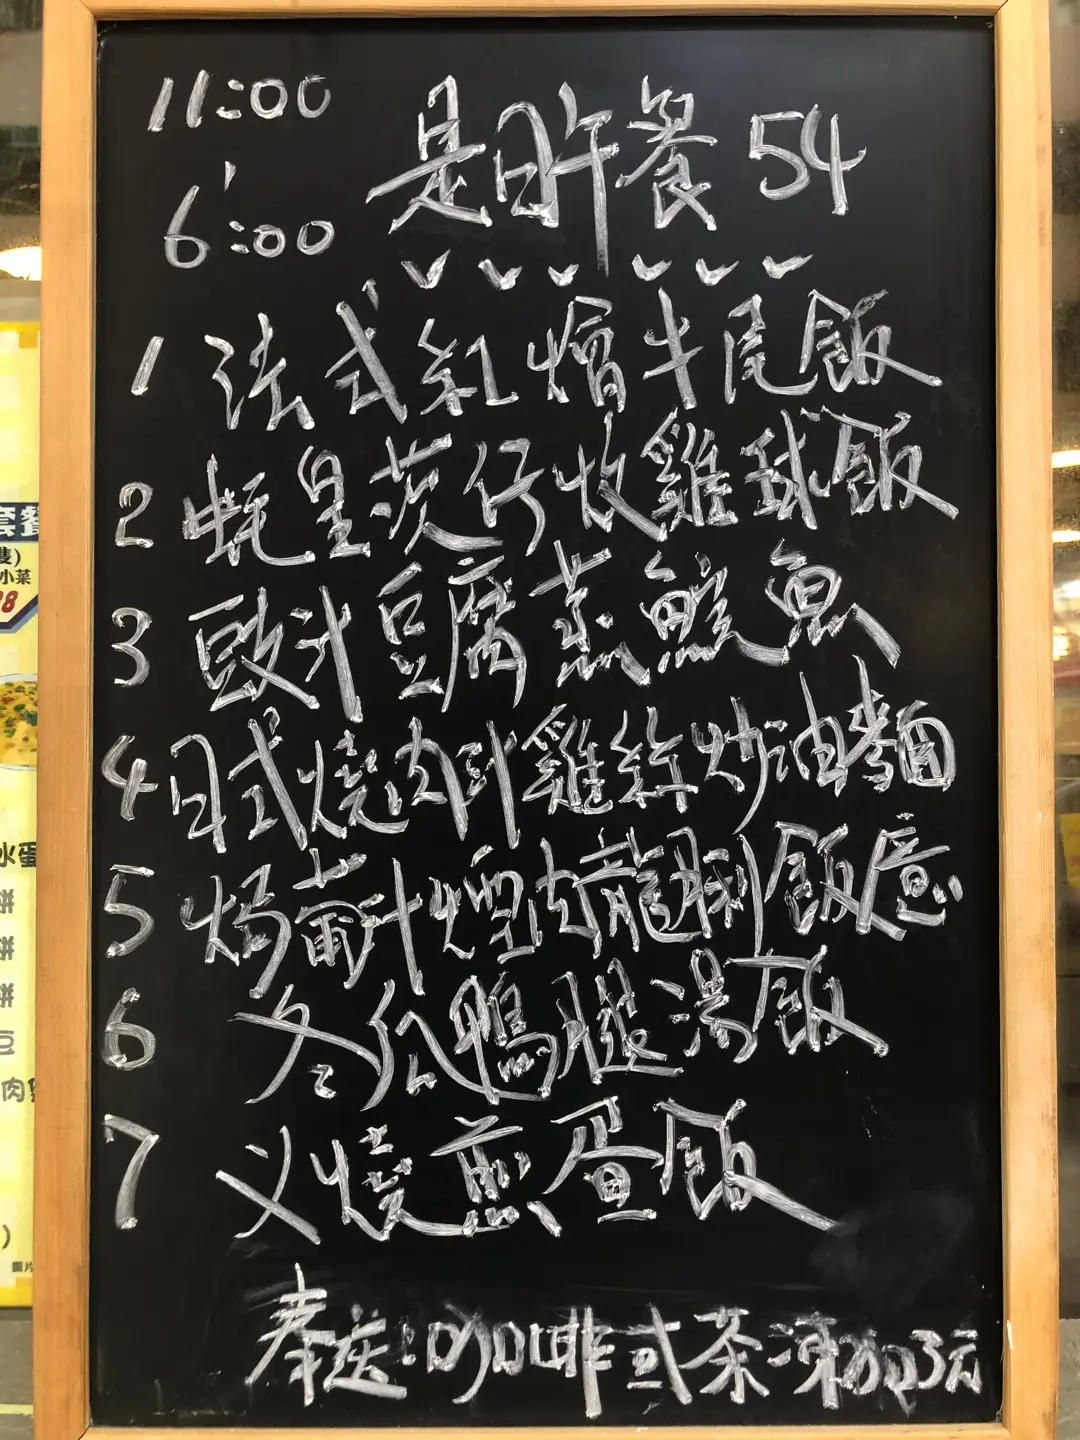 11:00
6:00
是日午餐 54
1 法式紅燴牛尾飯
2 蚝皇茨仔炆雞球飯
3 豉汁豆腐蒸鯇魚
4 日式燒肉汁雞絲炒油麵
5 煙肉龍脷飯意
6 冬瓜鴨腿湯飯
7 义燒煎蛋飯
奉送:咖啡或茶凍加3元
套餐
隻)
小菜
8
水蛋
拼
拼
拼
豆
肉
)
圖片